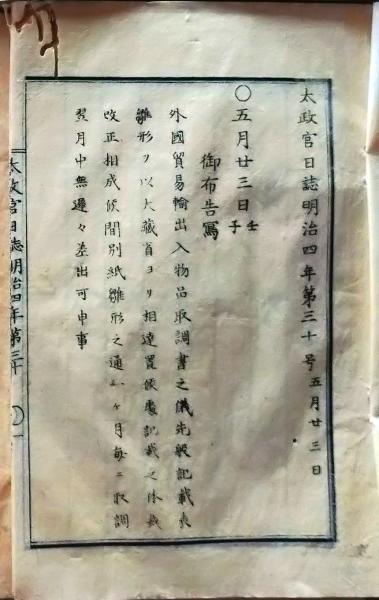 太政官日誌明治四年第三十号 五月廿三日
〇五月廿三日 壬子
御布告写
外國貿易輸出入物品取調書之儀先般記載表
雛形ヲ以大藏省ヨリ相達置候處記載之体裁
改正相成候間別紙雛形之通一ヶ月毎ニ取調
翌月中無遲々差出可申事
太政官日誌明治四年第三十